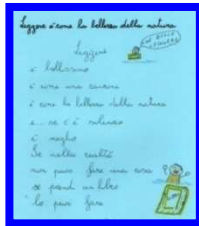 Leggere è come la bellezza della natura
Leggere
è bellissimo
è come una canzone
è come la bellezza della natura
e... se c'è silenzio
è meglio
Se nella realtà
non puoi fare una cosa
se prendi un libro
lo puoi fare